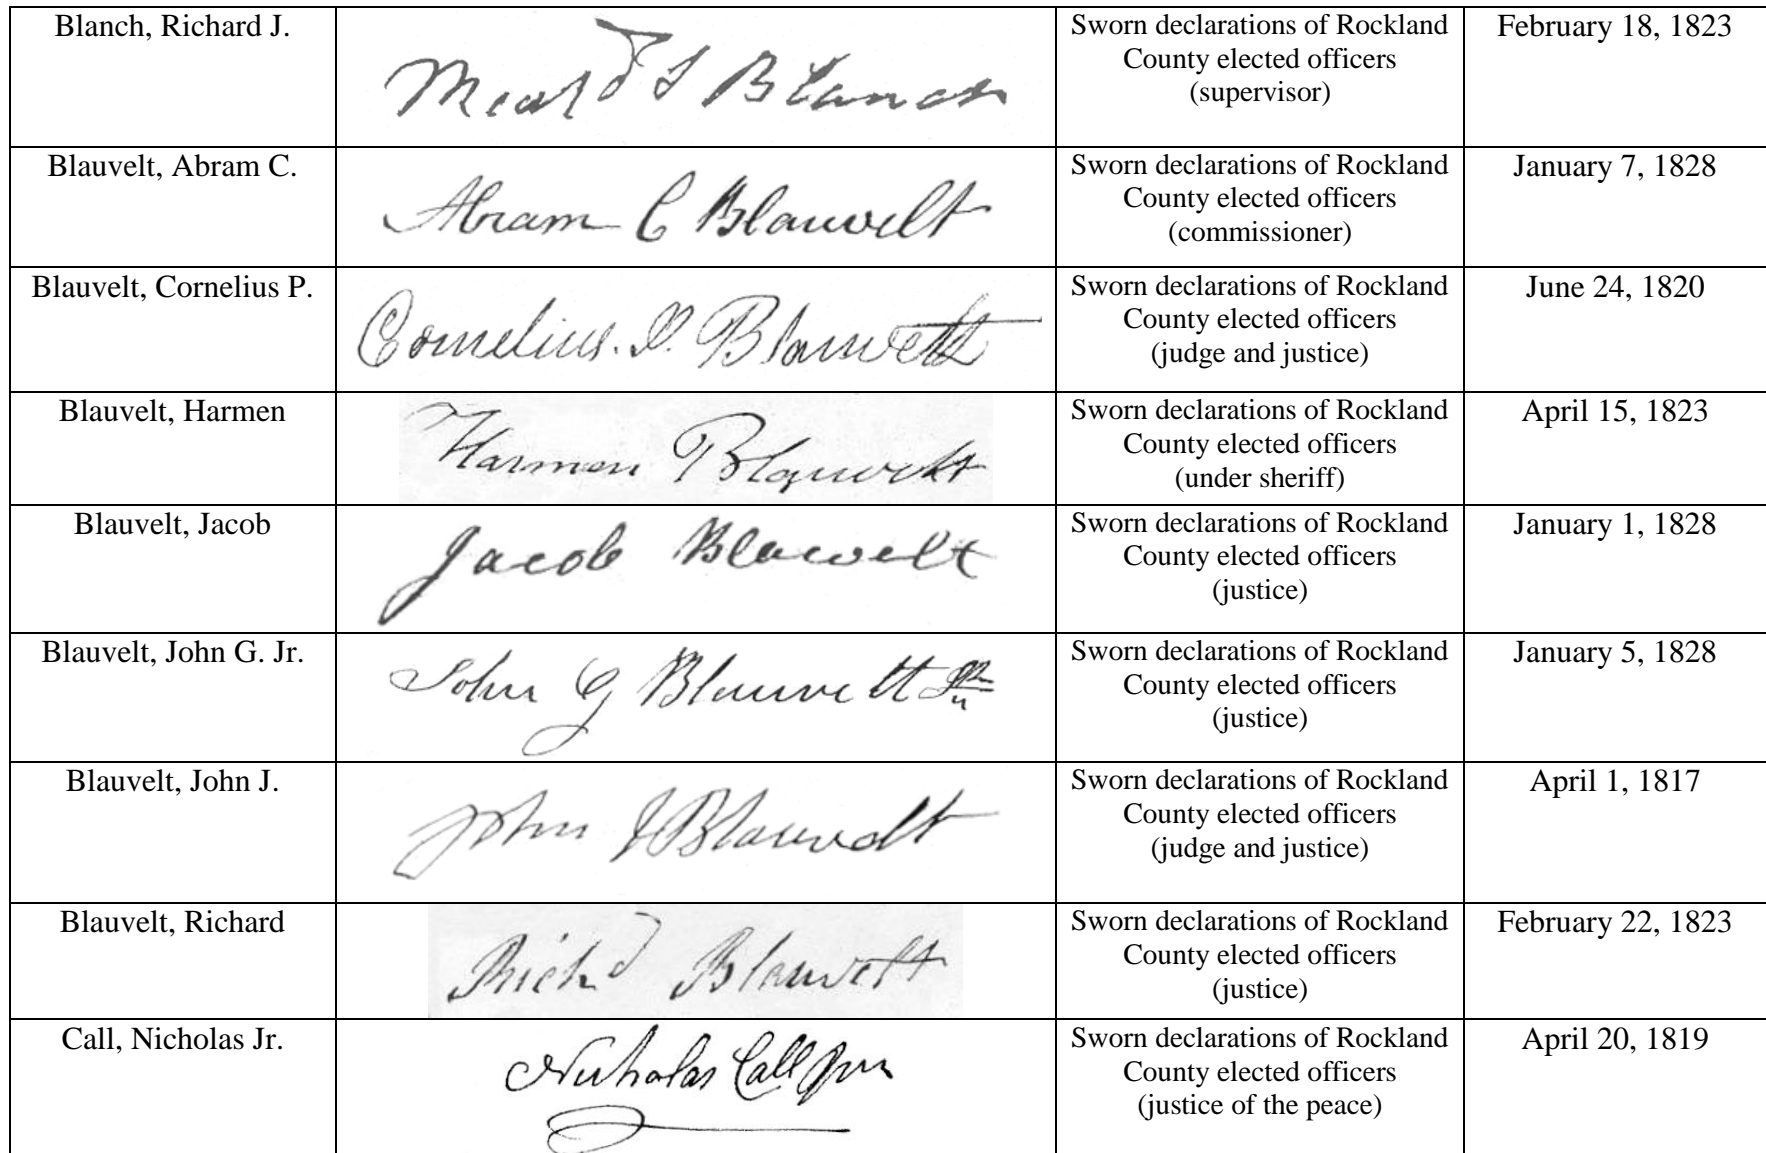 Blanch, Richard J.
Richd J Blanch
Sworn declarations of Rockland
County elected officers
(supervisor)
February 18, 1823
Blauvelt, Abram C.
Abram C Blauvelt
Sworn declarations of Rockland
County elected officers
(commissioner)
January 7, 1828
Blauvelt, Cornelius P.
Cornelius. P. Blauvelt
Sworn declarations of Rockland
County elected officers
(judge and justice)
June 24, 1820
Blauvelt, Harmen
Harmen Blauvelt
Sworn declarations of Rockland
County elected officers
(under sheriff)
April 15, 1823
Blauvelt, Jacob
Jacob Blauvelt
Sworn declarations of Rockland
County elected officers
(justice)
January 1, 1828
Blauvelt, John G. Jr.
John G Blauvelt Jr
Sworn declarations of Rockland
County elected officers
(justice)
January 5, 1828
Blauvelt, John J.
John J Blauvelt
Sworn declarations of Rockland
County elected officers
(judge and justice)
April 1, 1817
Blauvelt, Richard
Richd Blauvelt
Sworn declarations of Rockland
County elected officers
(justice)
February 22, 1823
Call, Nicholas Jr.
Nicholas Call Jun
Sworn declarations of Rockland
County elected officers
(justice of the peace)
April 20, 1819